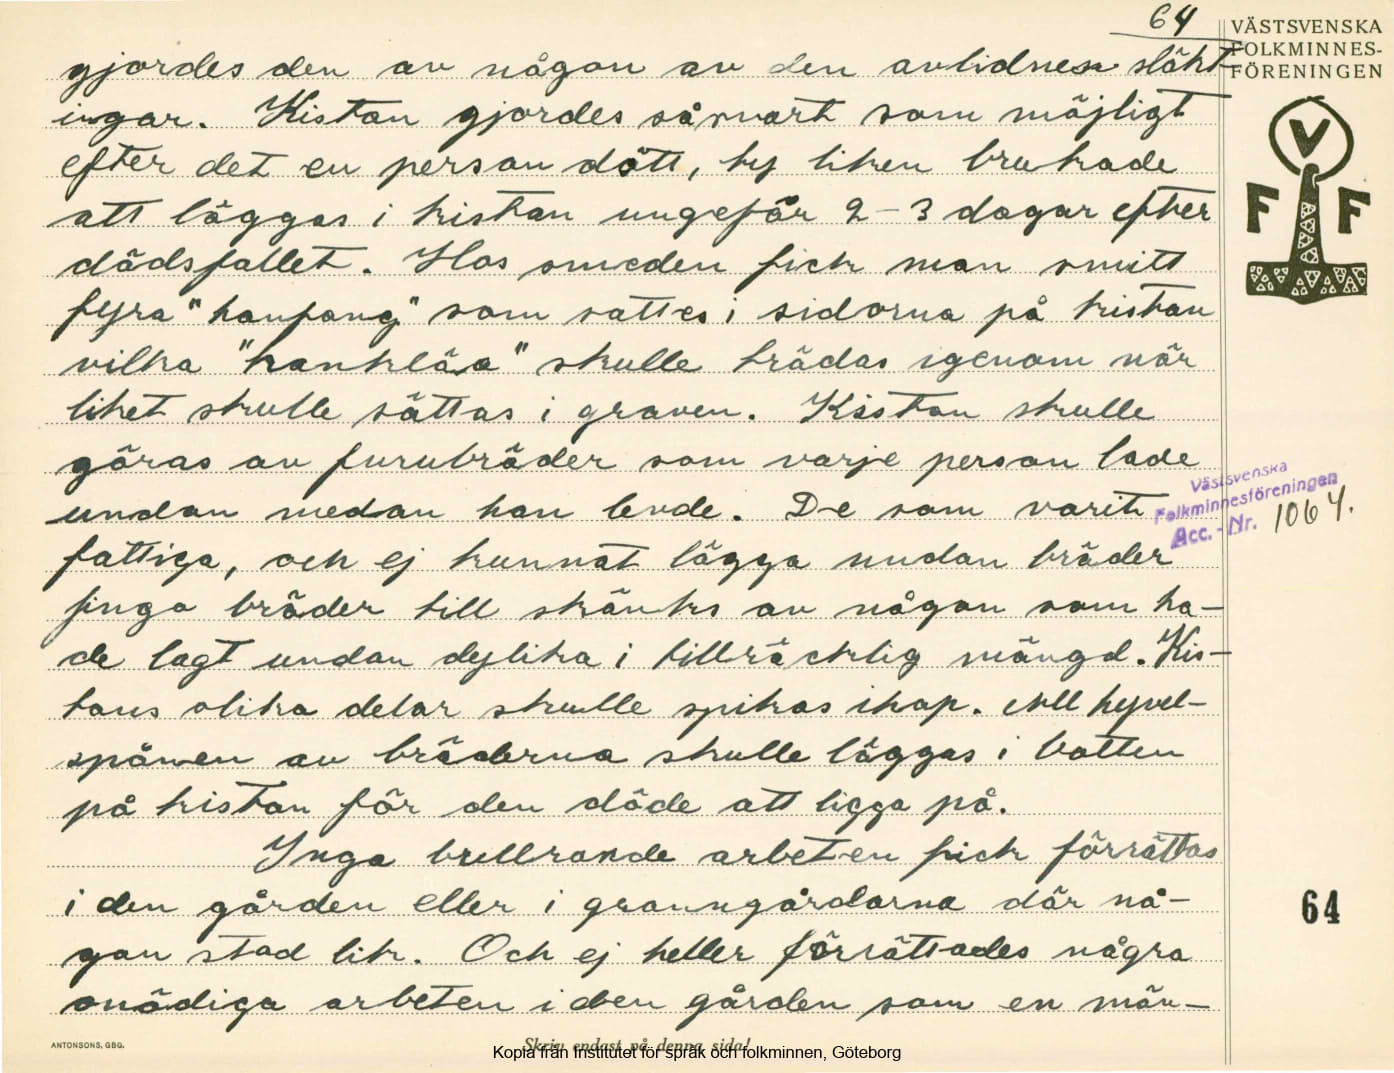 64
VÄSTSVENSKA
FOLKMINNES-
FÖRENINGEN
gjordes den av någon av den avlidnes släkt
ingar. Kistan gjordes så snart som möjligt
efter det en person dött, ty liken brukade
att läggas i kistan ungefär 2-3 dagar efter
dödsfallet. Hos smeden fick man smitt
fyra "hanfang" som sattes i sidorna på kistan
vilka "hankläa" skulle trädas igenom när
liket skulle sättas i graven. Kistan skulle
göras av furubräder som varje person lade
undan medan han levde. De som varit
fattiga, och ej kunnat lägga undan bräder
finga bräder till skänks av någon som ha-
de lagt undan dylika i tillräcklig mängd. Kis-
tans olika delar skulle spikas ihop. All hyvel-
spånen av bräderna skulle läggas i botten
på kistan för den döde att ligga på.
Inga bullrande arbeten fick förrättas
i den gården eller i granngårdarna där nå-
gon stod lik. Och ej heller förrättades några
onödiga arbeten i den gården som en män-
V
F F
Västsvenska
Folkminnesföreningen
Acc.-Nr. 1064.
64
ANTONSONS, GBG.
Skriv endast på denna sida!
Kopia från Institutet för språk och folkminnen, Göteborg